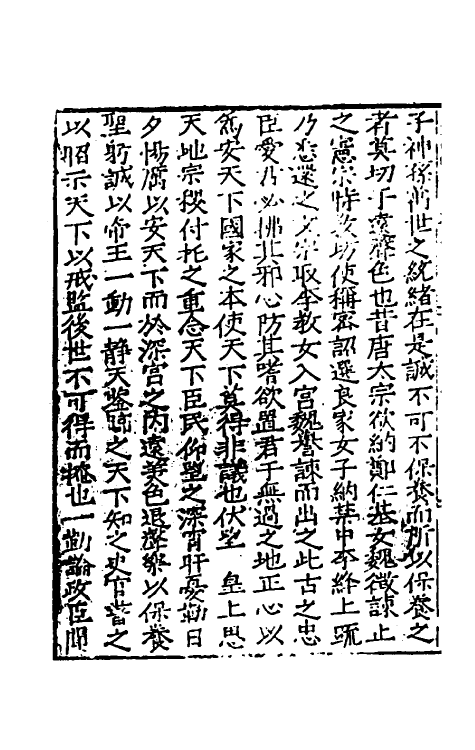 子神孫萬世之統緒在是誠不可不保養而所以保養之
者莫切于遠聲色也昔唐太宗欲納鄭仁基女魏徵諫止
之憲宗時教坊使稱密詔選良家女子納禁中李絳上疏
乃悉還之文宗取李孝女入宮魏謩諫而出之此古之忠
臣愛君必拂其邪心防其嗜欲置君于無過之地正心以
為安天下國家之本使天下莫得非議也伏望 皇上思
天地宗稷付托之重念天下臣民仰望之深宵旰憂勤日
夕惕厲以安天下而於深宮之內遠聲色退聲樂以保養
聖躬誠以帝王一動一静天鑒臨之天下知之史官書之
以昭示天下以戒監後世不可得而掩也一勤論政臣聞